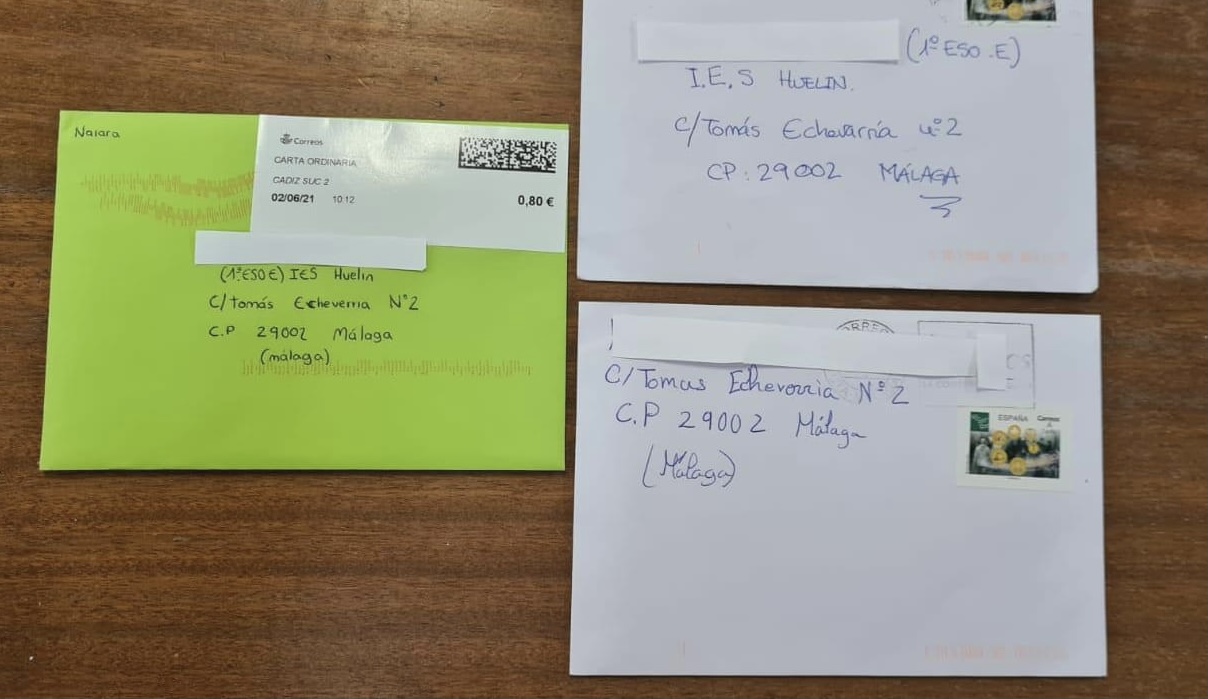 Naiara
Correos
CARTA ORDINARIA
CADIZ SUC 2
02/06/21 10:12
0,80 €
(1ºESO E) IES Huelin
C/tomás Echeverria Nº2
C.P 29002 Málaga
(málaga)
(1º ESO.E)
I.E.S HUELIN.
C/Tomás Echevarría nº2
CP: 29002 MÁLAGA
C/Tomas Echeverria Nº 2
C.P 29002 Málaga
(Málaga)
ESPAÑA Correos